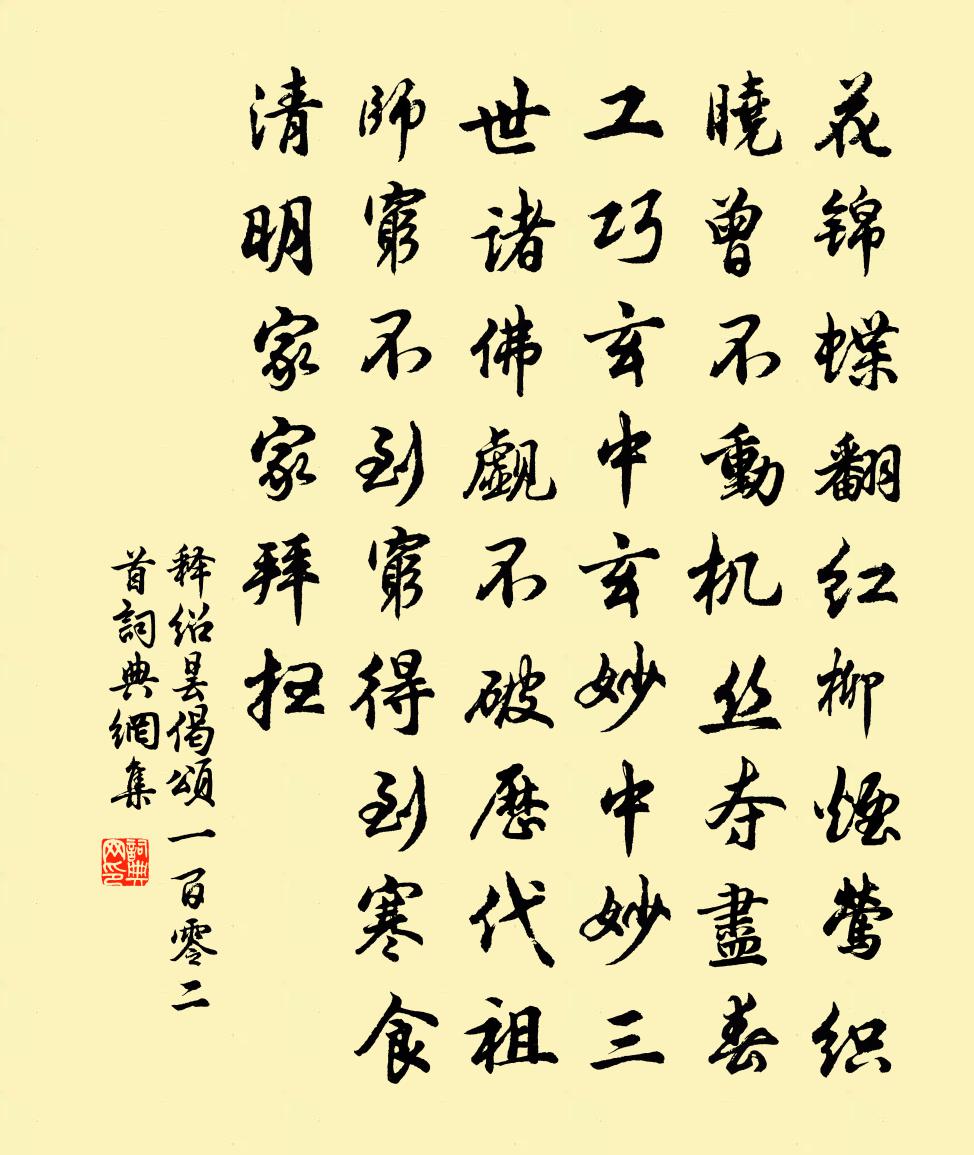 花锦蝶翻红柳烟莺织
晓曾不動机丝夺盡春
工巧玄中玄妙中妙三
世诸佛觑不破歷代祖
師窮不到窮得到寒食
清明家家拜扫
释绍昙偈頌一百零二
首詞典網集
詞典网印